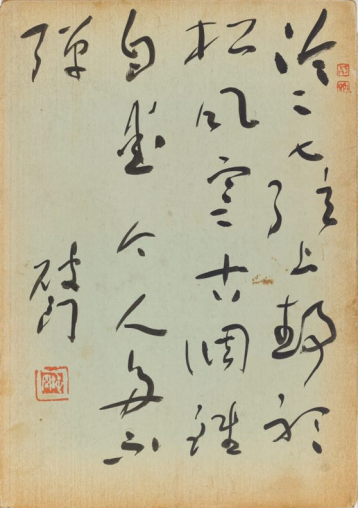 泠々七弦上靜聽
松風寒古調雖
自愛今人多不
彈
破门